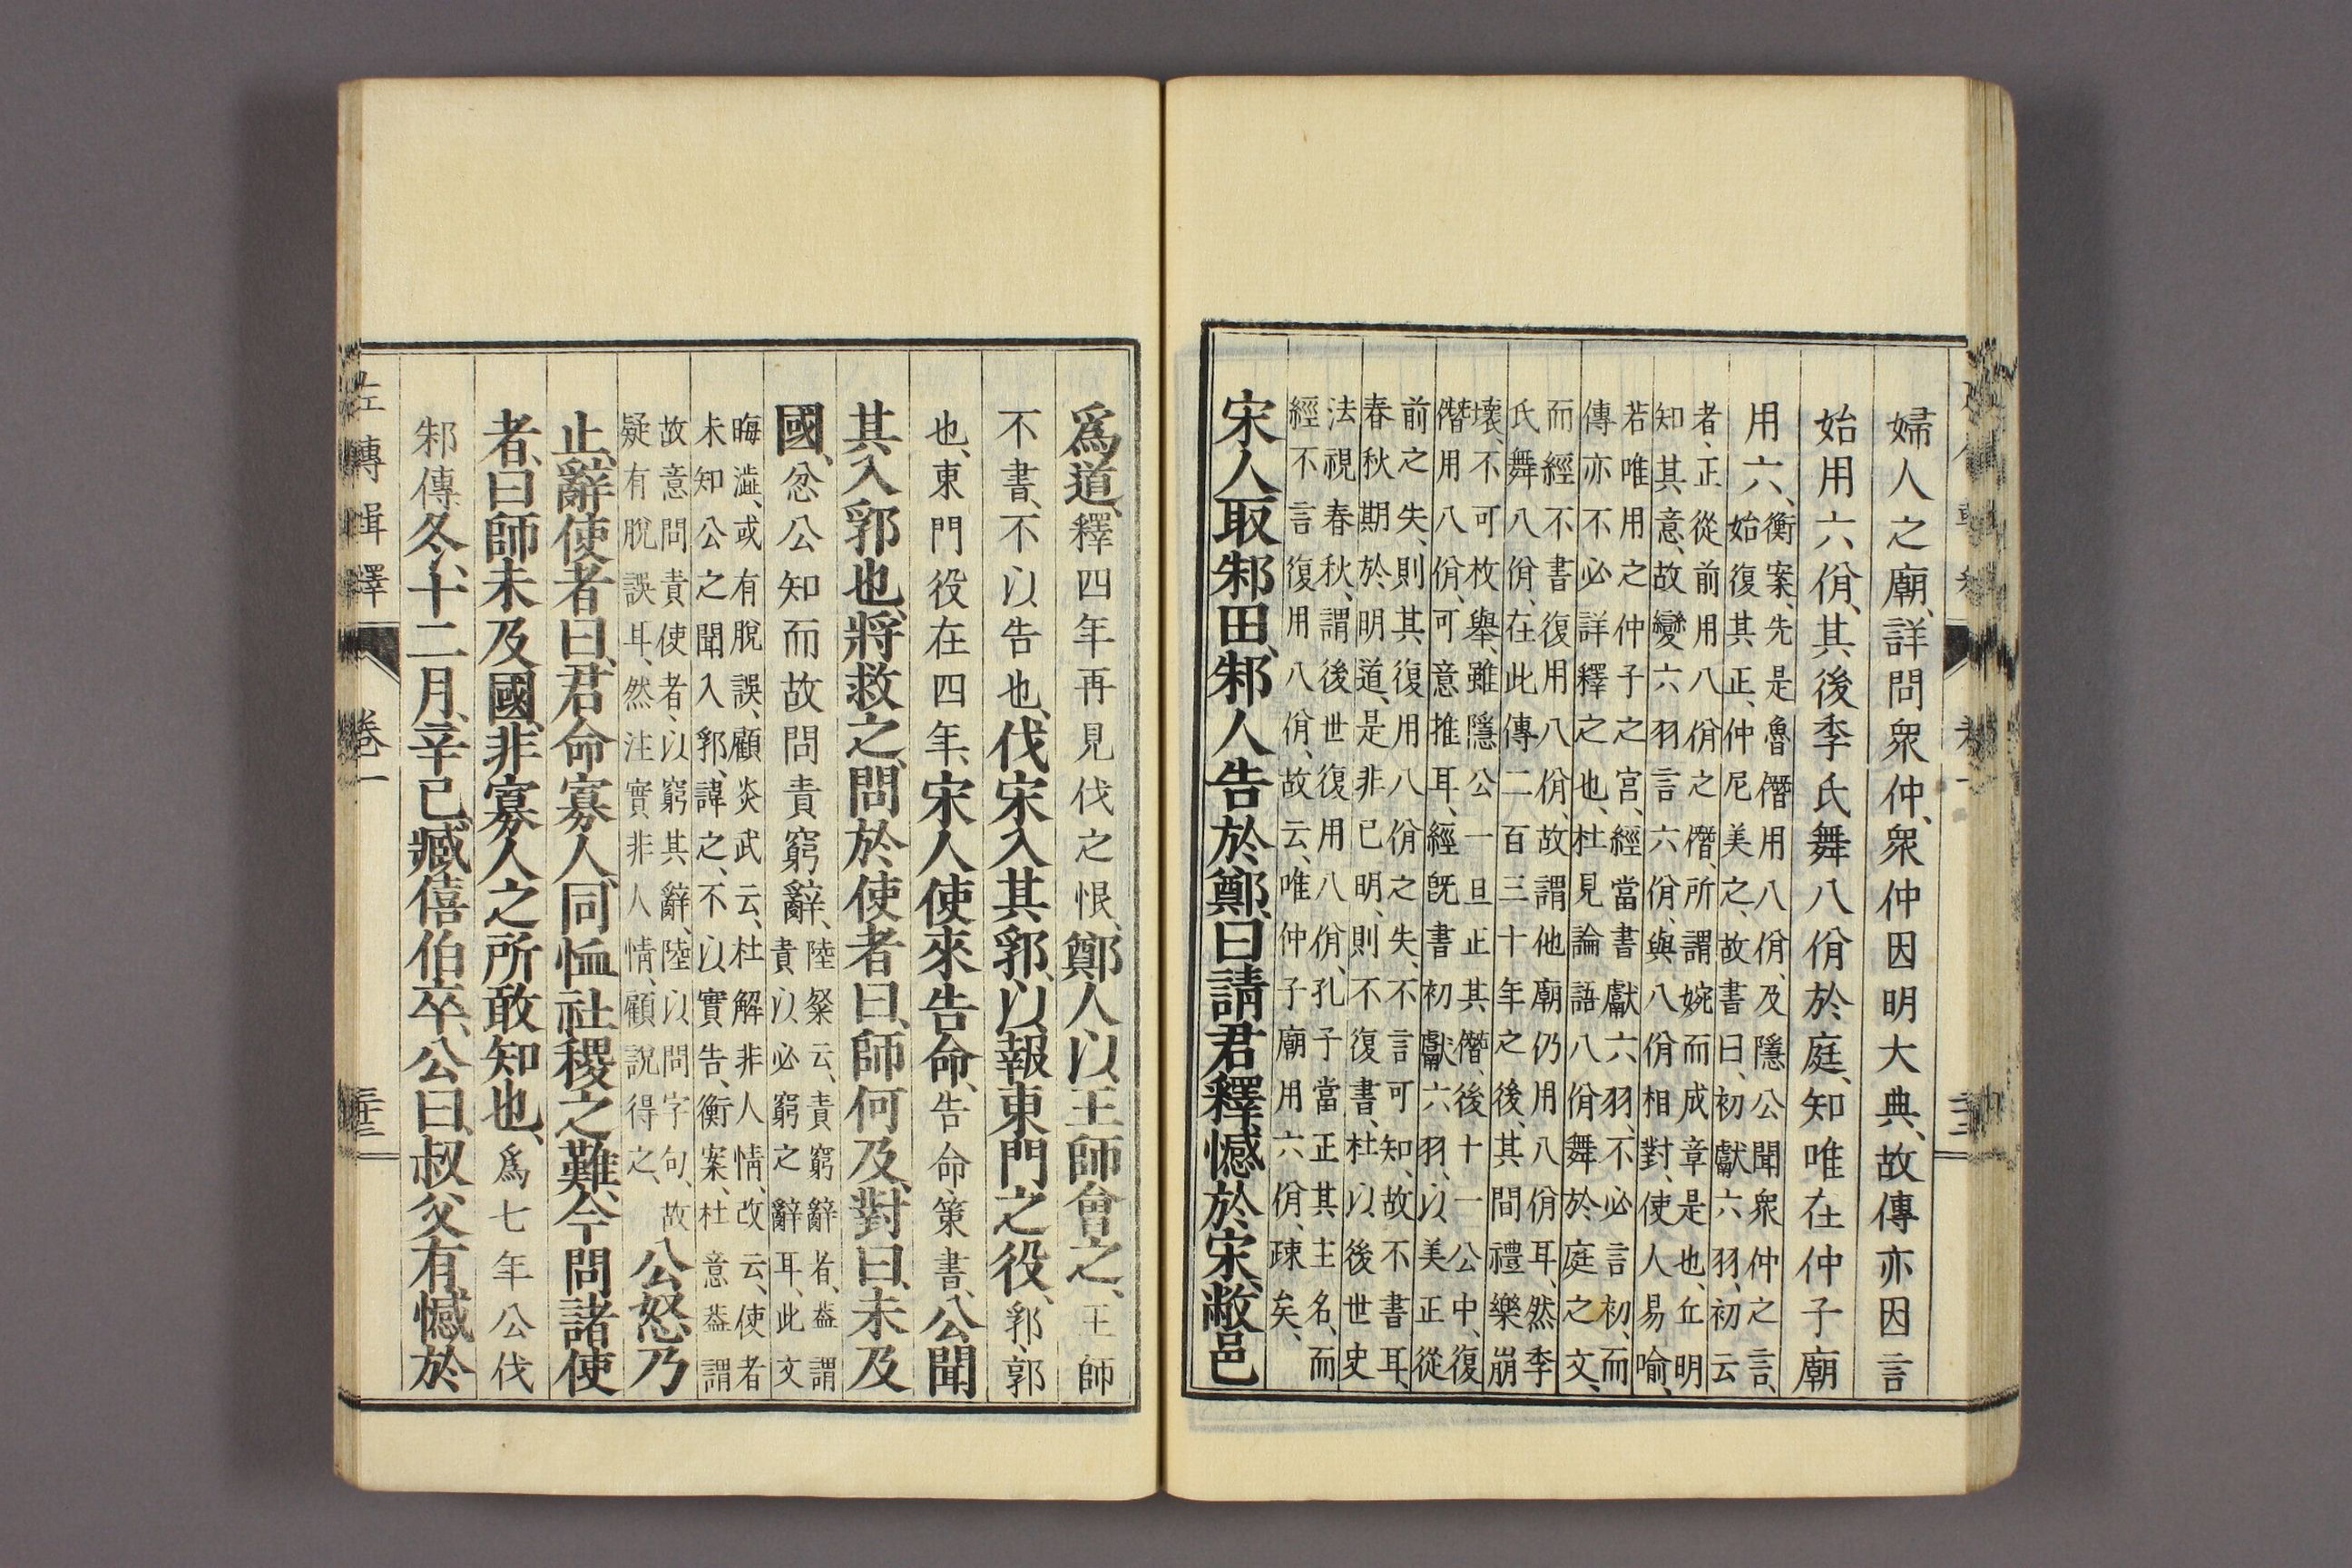 婦人之廟、詳問衆仲、衆仲因明大典、故傳亦因言
始用六佾、其後季氏舞八佾於庭、知唯在仲子廟
用六、衡案、先是魯僭用八佾、及隱公聞衆仲之言、
始復其正、仲尼美之、故書曰、初獻六羽、初云
者、正從前用八佾之僭、所謂婉而成章是也、丘明
知其意、故變六羽言六佾、與八佾相對、使人易喻、
若唯用之仲子之宮、經當書獻六羽、不必言初、而
傳亦不必詳釋之也、杜見論語八佾舞於庭之文、
而經不書復用八佾、故謂他廟仍用八佾耳、然季
氏舞八佾、在此傳二百三十年之後、其間禮樂崩
壞、不可枚舉、雖隱公一旦正其僭、後十一公中、復
僭用八佾、可意推耳、經既書初獻六羽、以美正從
前之失、則其復用八佾之失、不言可知、故不書耳、
春秋期於明道、是非已明、則不復書、杜以後世史
法視春秋、謂後世復用八佾、孔子當正其主名、而
經不言復用八佾、故云、唯仲子廟用六佾、疎矣、
宋人取邾田、邾人告於鄭、曰請君釋憾於宋、敝邑
爲道、釋四年再見伐之恨、鄭人以王師會之、王師
不書、不以告也、伐宋入其郛、以報東門之役、郛、郭
也、東門役在四年、宋人使來告命、告命、策書、公聞
其入郛也、將救之、問於使者曰、師何及、對曰、未及
國、忿公知而故問責窮辭、陸粲云、責窮辭者、蓋謂
責以必窮之辭耳、此文
晦澁、或有脫誤、顧炎武云、杜解非人情、改云、使者
未知公之聞入郛、諱之、不以實告、衡案、杜意蓋謂
故意問責使者、以窮其辭、陸以問字句、故
疑有脫誤耳、然注實非人情、顧說得之、公怒乃
止、辭使者曰、君命寡人、同恤社稷之難、今問諸使
者、曰師未及國、非寡人之所敢知也、爲七年公伐
邾傳、冬、十二月、辛巳、臧僖伯卒、公曰、叔父有憾於
左傳輯釋 卷一